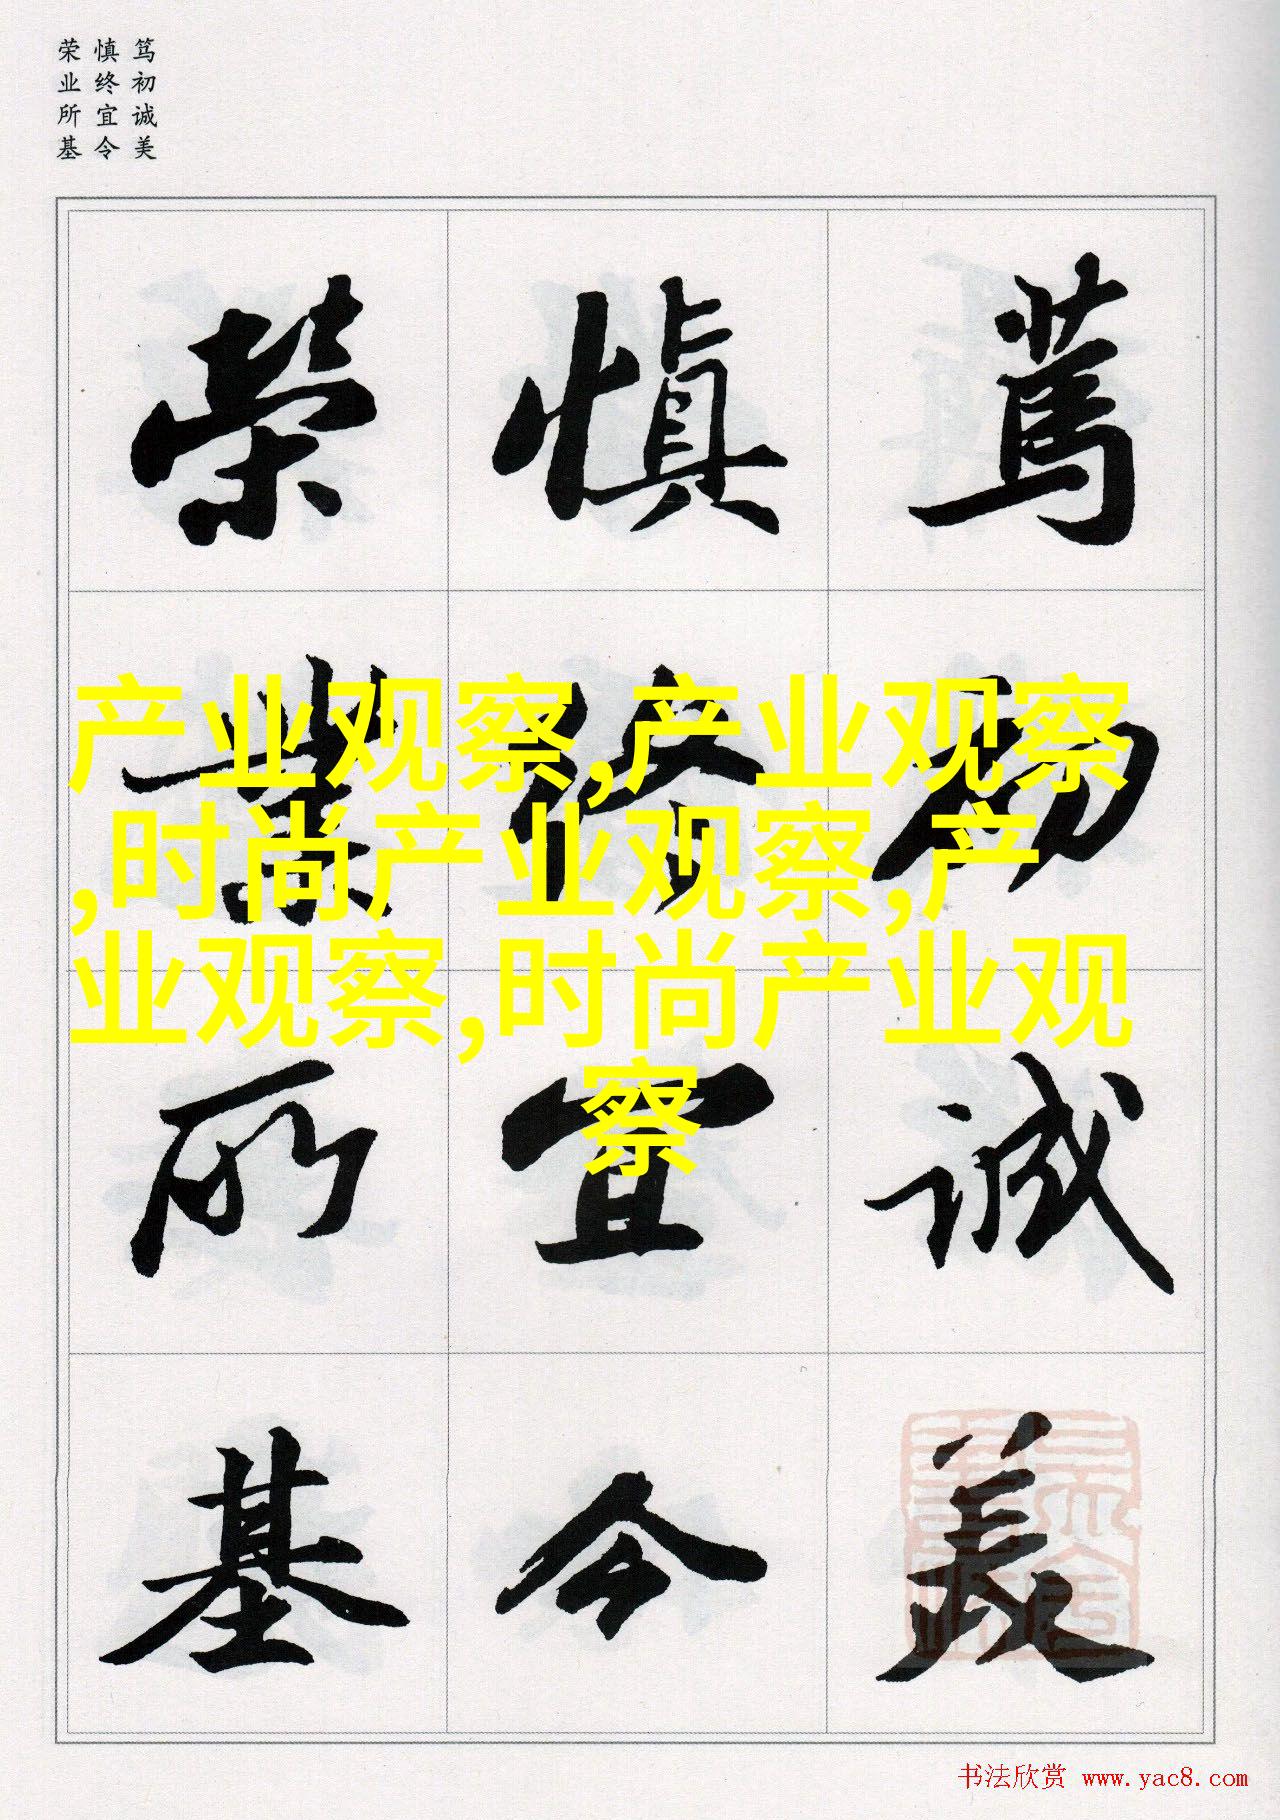 笃初诚美
慎终宜令
荣业所基
篤初诚美
慎终宜令
榮業所基
产业观察,产业观察
,时尚产业观察,产
业观察,时尚产业观
察
书法欣赏 www.yac8.com